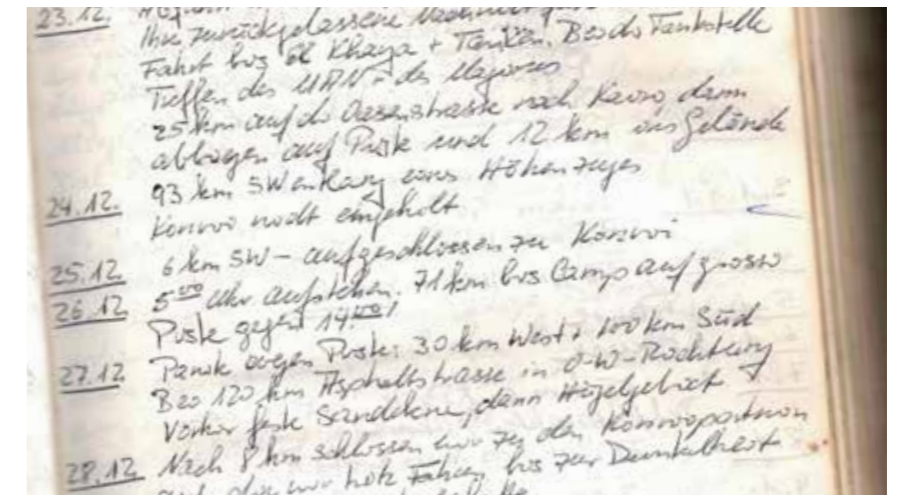 23.12.
Ihre zurückgelassene
Fahrt bis el Kharga + Tanken. Bei der Tankstelle
Treffen des MAN + des Magirus
25 km auf der Oasenstrasse nach Kairo, dann
abbiegen auf Piste und 12 km ins Gelände
24.12. 93 km SW entlang eines Höhenzuges
Konvoi nicht eingeholt
25.12. 6 km SW – aufgeschlossen zu Konvoi
26.12. 5⁰⁰ Uhr aufstehen. 71 km bis Camp auf grosse
Piste gegen 14⁰⁰!
27.12. Panik wegen Piste: 30 km West + 100 km Süd
Bei 120 km Asphaltstrasse in O-W-Richtung
Vorher feste Sandebene, dann Hügelgebiet
28.12. Nach 8 km schlossen wir zu den Konvoipartnern
auf, die wir trotz Fahren bis zur Dunkelheit